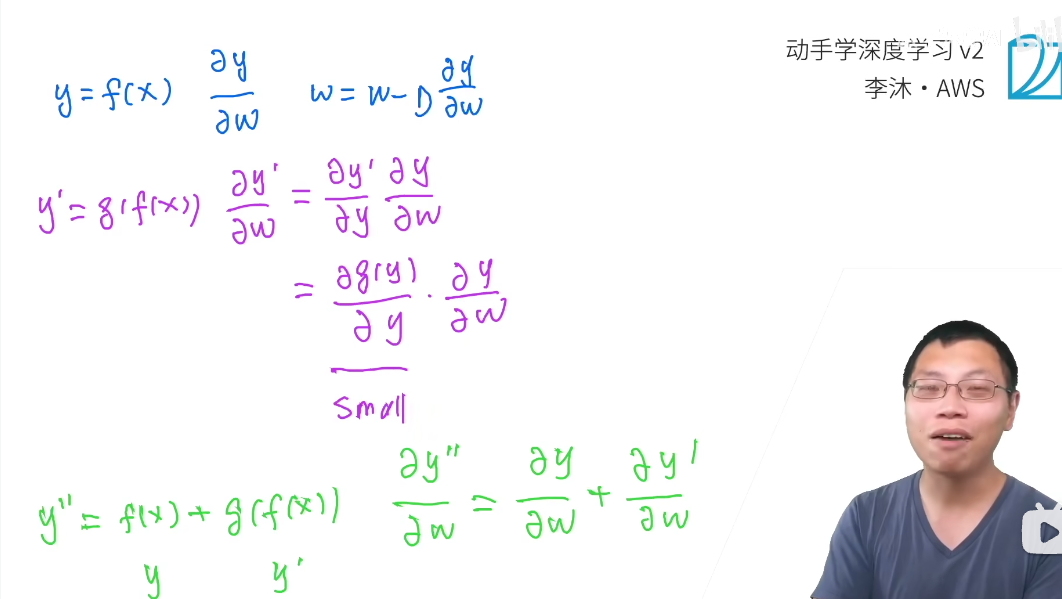 动手学深度学习 v2
李沐・AWS
y = f(x) ∂y/∂w w = w - η ∂y/∂w
y' = g(f(x)) ∂y'/∂w = ∂y'/∂y ∂y/∂w
= ∂g(y)/∂y · ∂y/∂w
small
y'' = f(x) + g(f(x)) ∂y''/∂w = ∂y/∂w + ∂y'/∂w
y y'